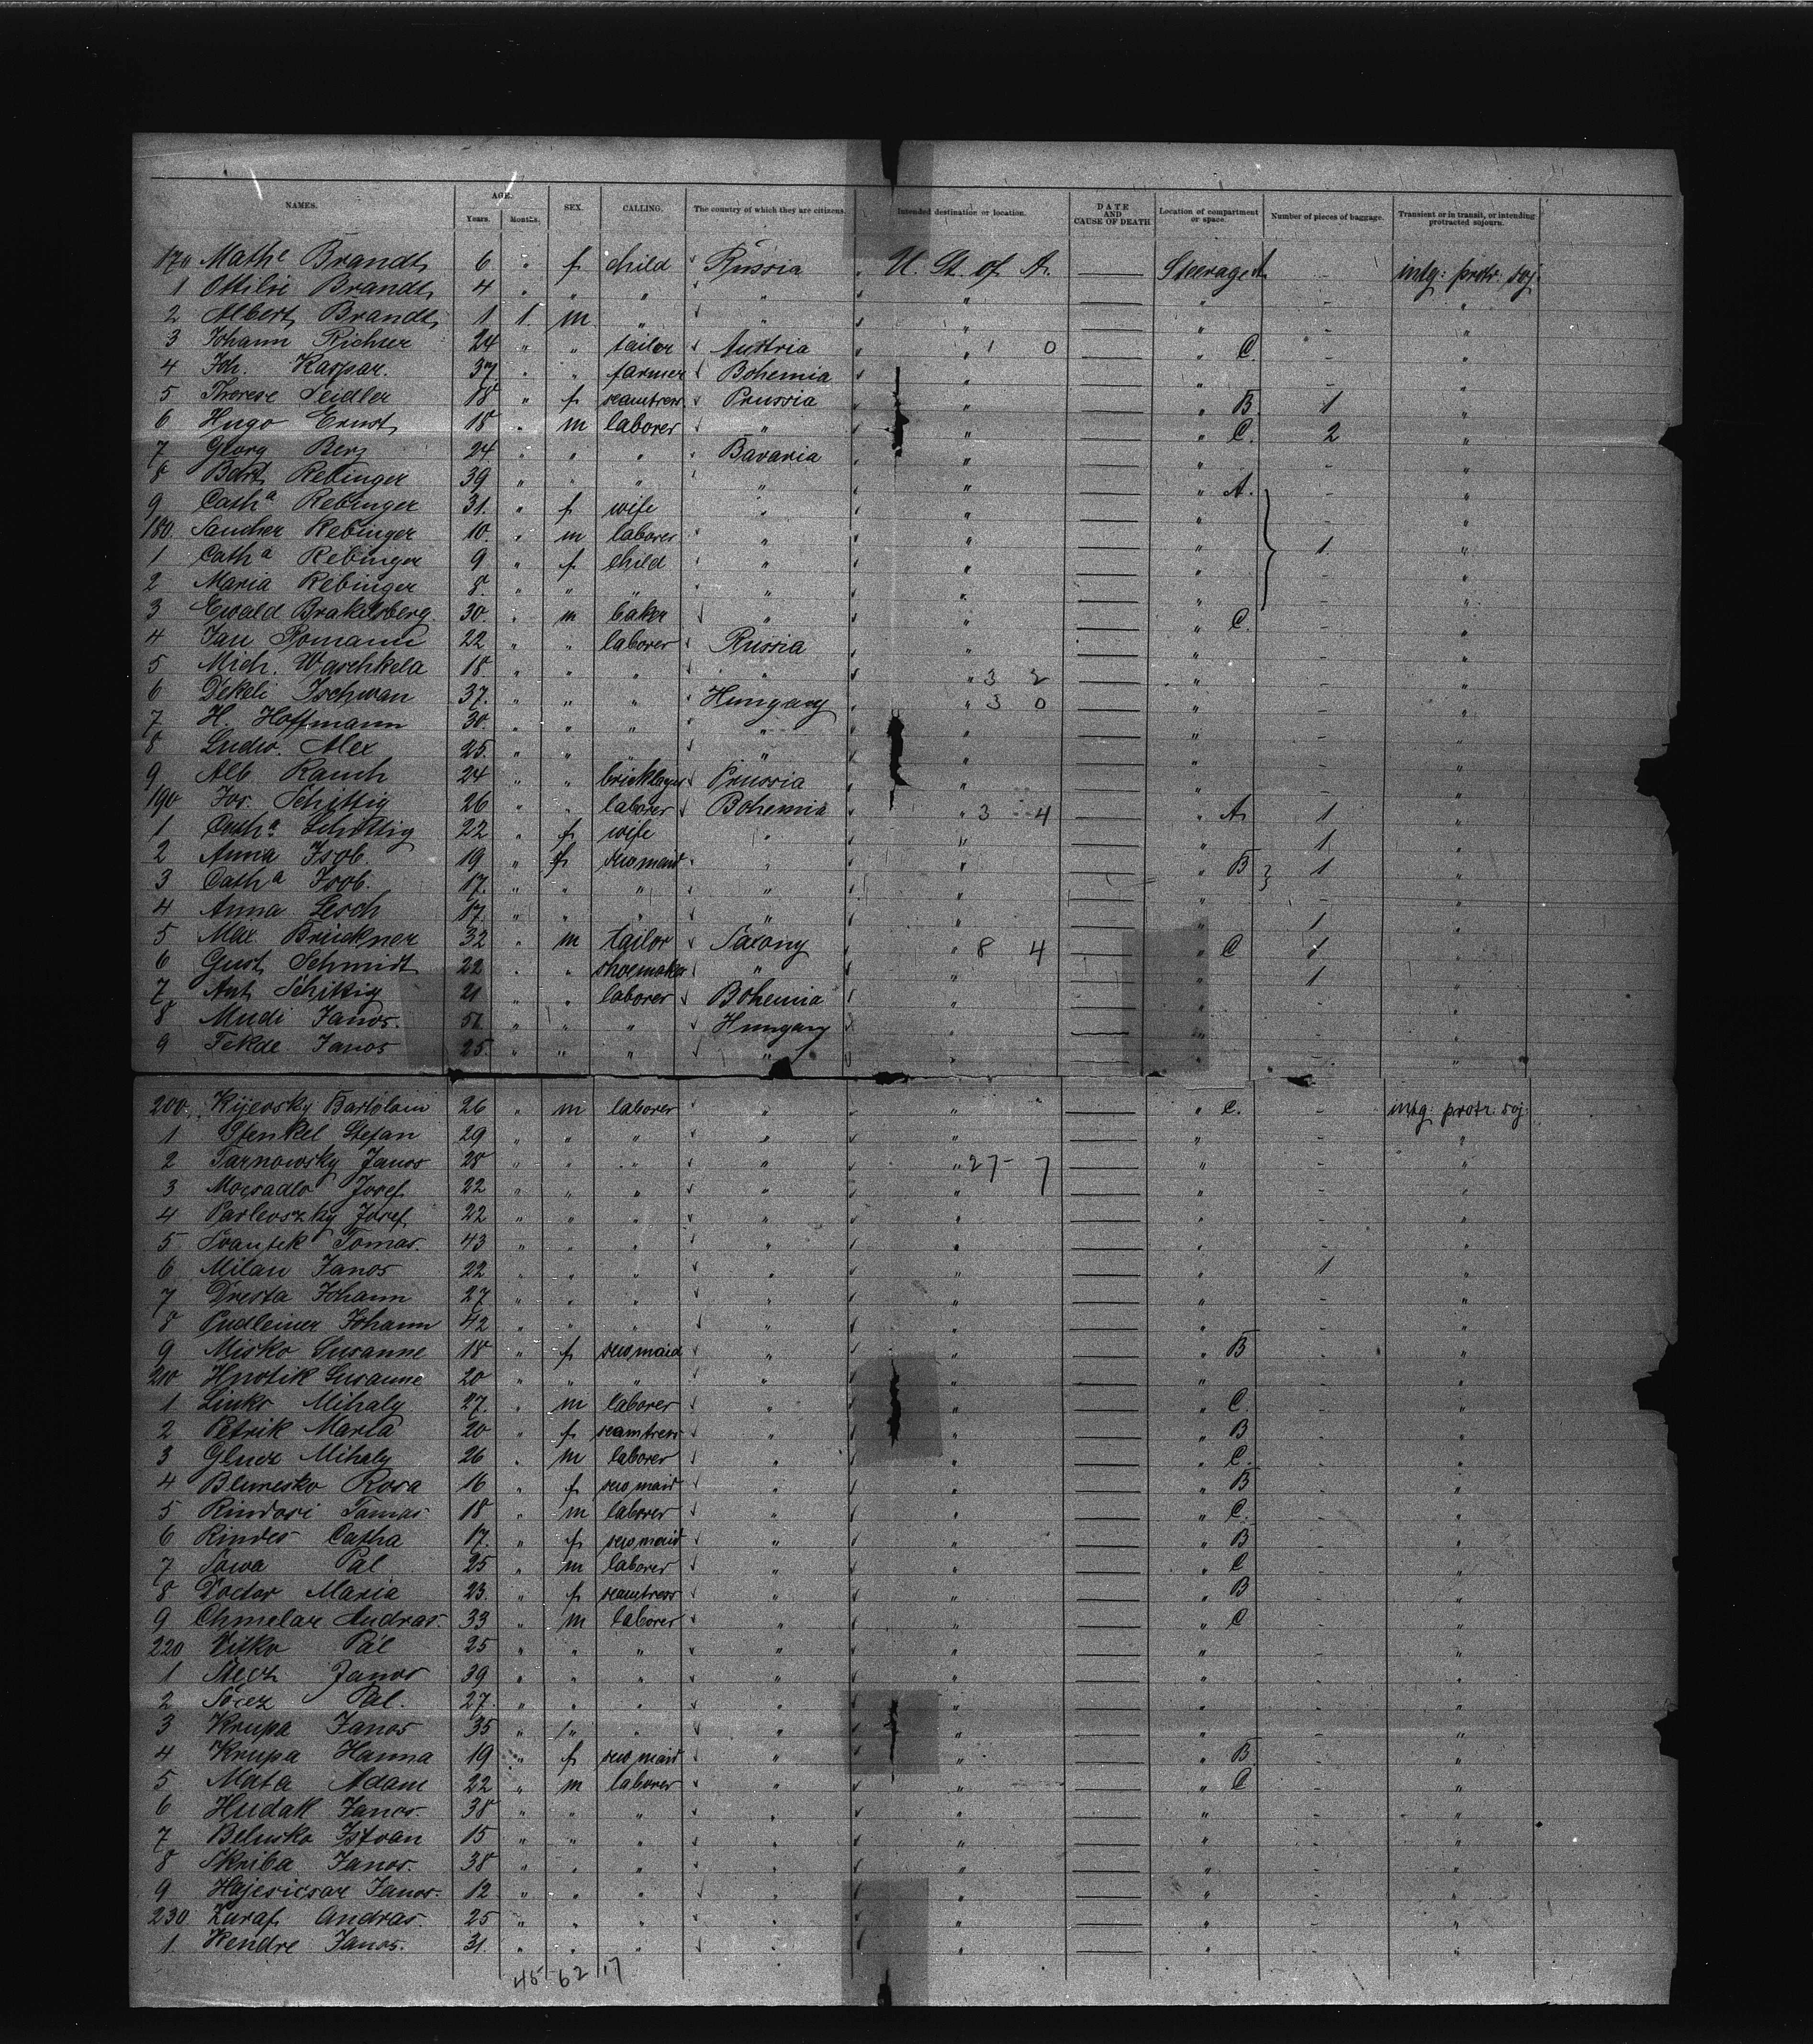 NAMES. AGE. Years. Months. SEX. CALLING. The country of which they are citizens. Intended destination or location. DATE AND CAUSE OF DEATH Location of compartment or space. Number of pieces of baggage. Transient or in transit, or intending protracted sojourn.
170 Mathe Brandt 6 " f child Russia U. St. of A. — Steerage A - intg: protr: soj.
1 Ottilie Brandt 4 " " " " " — " - "
2 Albert Brandt 1 1 m " " " — " - "
3 Johann Richter 24 " " tailor Austria " 1 0 — " C. - "
4 Joh. Kaspar. 37 " " farmer Bohemia " — " - "
5 Therese Seidler 18 " f seamtress Prussia " — " B 1 "
6 Hugo Ernst 18 " m laborer " " — " C. 2 "
7 Georg Berz 24 " " " Bavaria " — " - "
8 Bart. Rebinger 39 " " " " " — " A. - "
9 Catha Rebinger 31. " f wife " " — " - "
180. Rebinger 10. " m laborer " " — " 1 "
1 Catha Rebinger 9 " f child " " — " - "
2 Maria Rebinger 8. " " " " " — " - "
3 Ewald Brakelsberg 30. " m baker " " — " C. - "
4 Jan Romann 22 " " laborer Russia " — " - "
5 Mich. Waschkela 18 " " " " " 3 2 — " - "
6 Dekeli Ischwan 37. " " " Hungary " 3 0 — " - "
7 H. Hoffmann 30. " " " " " — " - "
8 Ludw. Alex 25. " " " " " — " - "
9 Alb. Rauch 24 " " bricklayer Prussia " — " - "
190 Jos. Schittig 26 " " laborer Bohemia " 3 4 — " A 1 "
1 Catha Schittig 22 " f wife " " — " 1 "
2 Anna Isob. 19 " f serv maid " " — " B 1 "
3 Catha Isob. 17. " " " " " — " - "
4 Anna Lesch 17. " " " " " — " 1 "
5 Max Brückner 32 " m tailor Saxony " 8 4 — " C 1 "
6 Gust. Schmidt 22 " " shoemaker " " — " 1 "
7 Ant. Schittig 21 " " laborer Bohemia " — " - "
8 Mudi Janos. 51 " " " Hungary " — " - "
9 Tekde Janos 25. " " " " " — " - "
200. Kijevsky Bartolam 26 " m laborer " " — " C. - intg: protr: soj.
1 Stenkel Stefan 29 " " " " " — " - "
2 Tarnowsky Janos 28 " " " " " 27 - 7 — " - "
3 Mocsadlo Josef 22 " " " " " — " - "
4 Pavlevszky Josef 22 " " " " " — " - "
5 Svantek Tomas. 43 " " " " " — " - "
6 Milan Janos 22 " " " " " — " 1 "
7 Dresta Johann 27. " " " " " — " - "
8 Pudleiner Johann 42 " " " " " — " - "
9 Misko Susanne 18 " f serv maid " " — " B - "
210 Hnotik Susanne 20 " " " " " — " - "
1 Linko Mihaly 27. " m laborer " " — " C. - "
2 Petrik Maria 20 " f seamtress " " — " B - "
3 Glucz Mihaly 26 " m laborer " " — " C. - "
4 Blunesko Rosa 16 " f serv maid " " — " B - "
5 Rindosi Tamas 18 " m laborer " " — " C. - "
6 Rindes Catha 17. " f serv maid " " — " B - "
7 Sowa Pal 25 " m laborer " " — " C - "
8. Doctor Maria 23. " f seamtress " " — " B - "
9 Chmelar Andras. 33 " m laborer " " — " C - "
220 Vitko Pál 25 " " " " " — " - "
1 Mecz Janos 39 " " " " " — " - "
2 Pal. 27. " " " " " — " - "
3 Krupa Janos 35 " " " " " — " - "
4 Krupa Hanna 19 " f serv maid " " — " B - "
5 Mata Adam 22 " m laborer " " — " C - "
6 Hudak Janos. 38 " " " " " — " - "
7 Belusko Istvan 15 " " " " " — " - "
8 Skriba Janos. 38 " " " " " — " - "
9 Janos. 12 " " " " " — " - "
230 Zuraf Andras. 25 " " " " " — " - "
1 Kendre Janos. 31 " " " " " — " - "
45 62 17